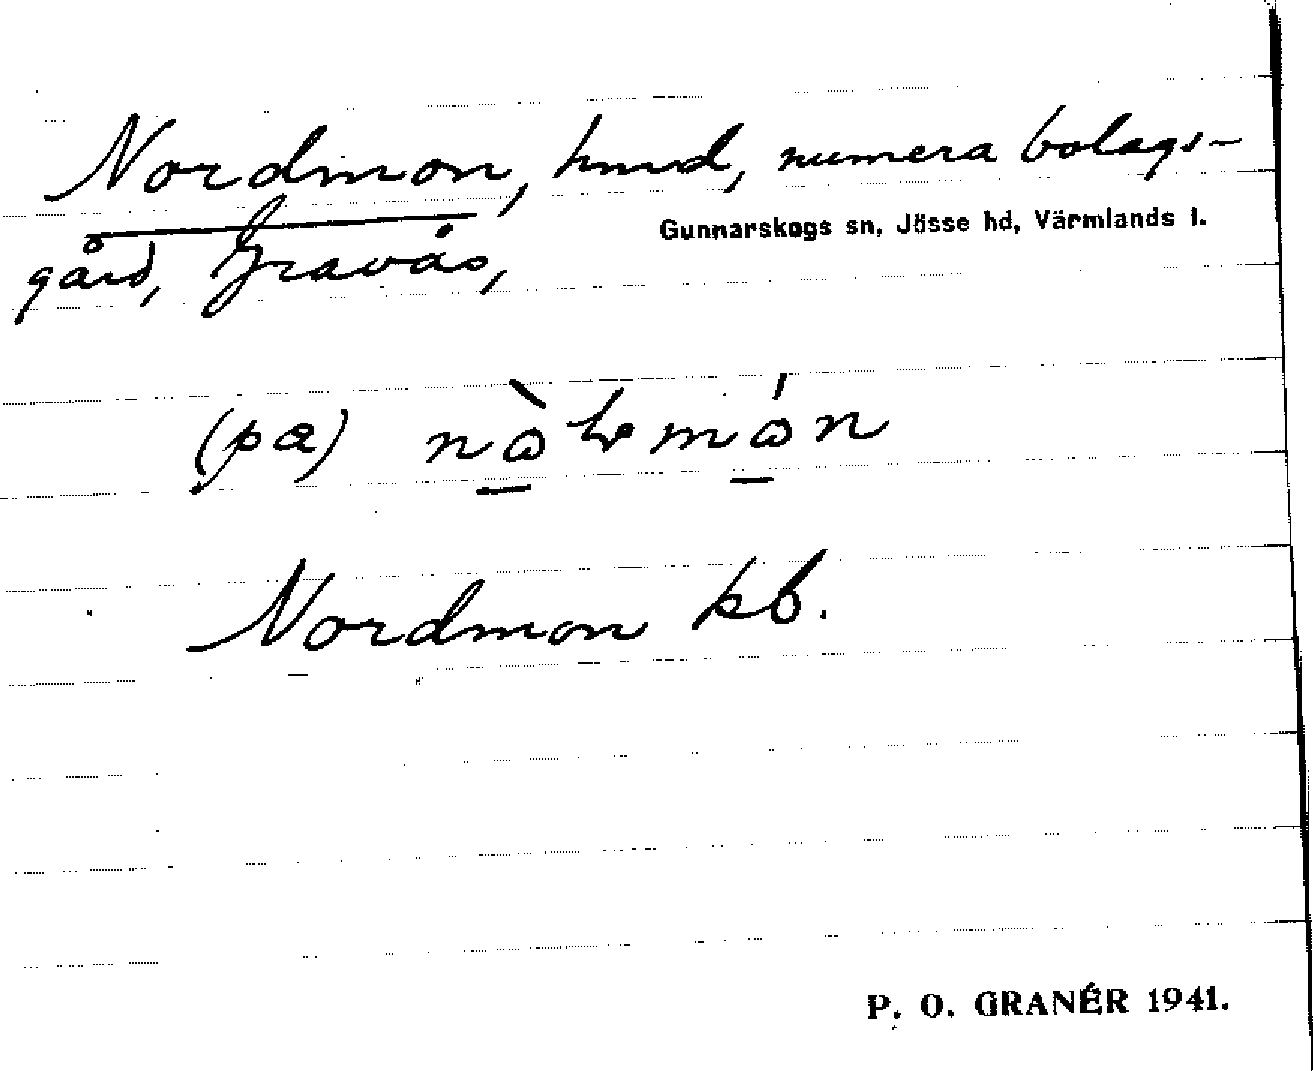 Nordmon, hmd, numera bolags-
Gunnarskogs sn, Jösse hd, Värmlands l.
gård, Gravås,
(pa)
Nordmon kb.
P. O. GRANÉR 1941.